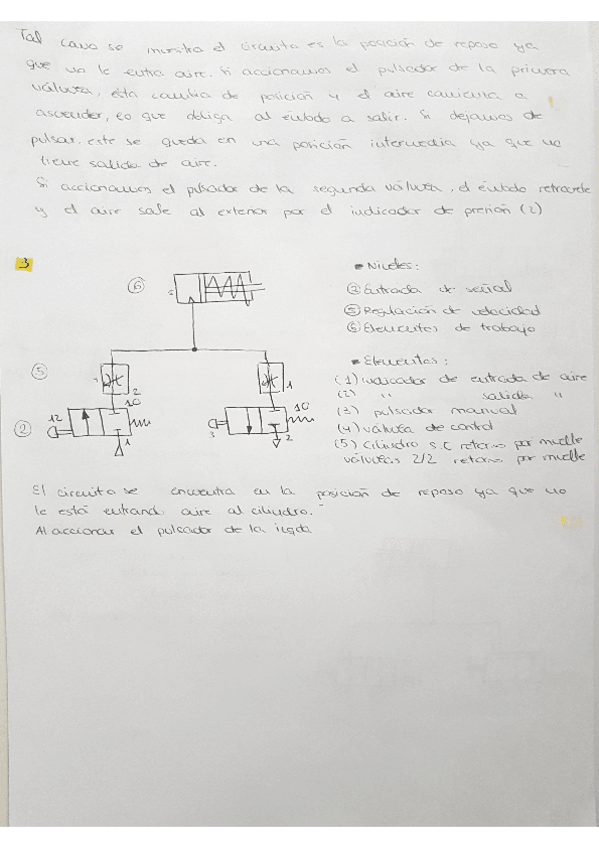 Tal como se muestra el circuito es la posición de reposo ya
que no le entra aire. Si accionamos el pulsador de la primera
válvula, ésta cambia de posición y el aire comienza a
ascender, lo que obliga al émbolo a salir. Si dejamos de
pulsar, este se queda en una posición intermedia ya que no
tiene salida de aire.
Si accionamos el pulsador de la segunda válvula, el émbolo retrocede
y el aire sale al exterior por el indicador de presión (2)
3
Niveles:
② Entrada de señal
⑤ Regulación de velocidad
⑥ Elementos de trabajo
Elementos:
(1) indicador de entrada de aire
(2) " salida "
(3) pulsador manual
(4) válvula de control
(5) cilindro S.C retorno por muelle
válvulas 2/2 retorno por muelle
⑥
⑤
2
1
12
10
10
②
1
3
2
El circuito se encuentra en la posición de reposo ya que no
le está entrando aire al cilindro.
Al accionar el pulsador de la izqda.